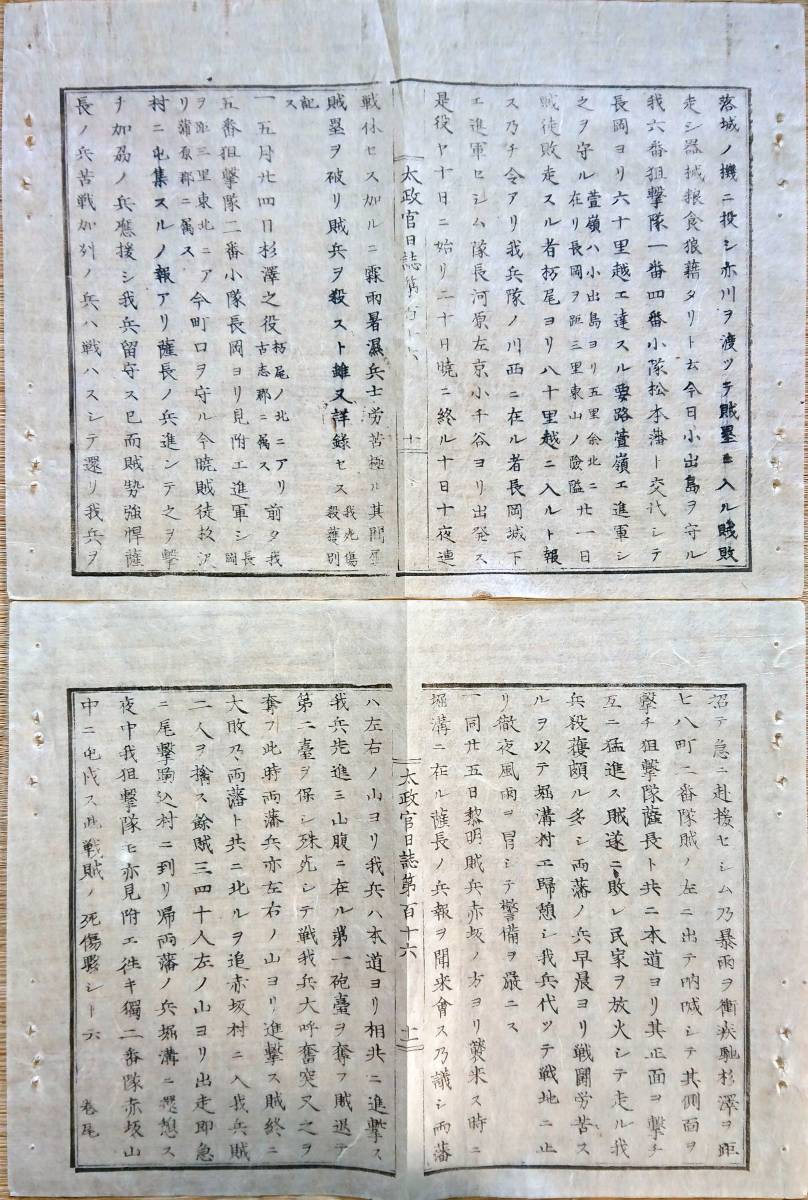 落城ノ機ニ投シ亦川ヲ渡ツテ賊塁ニ入ル賊敗
走シ器械粮食狼藉タリト云今日小出島ヲ守ル
我六番狙撃隊一番四番小隊松本藩ト交代シテ
長岡ヨリ六十里越エ達スル要路萱嶺エ進軍シ
之ヲ守ル 萱嶺ハ小出島ヨリ五里余北ニ
在リ長岡ヲ距三里東山ノ険隘 廿一日
賊徒敗走スル者栃尾ヨリ八十里越ニ入ルト報
ス乃チ令アリ我兵隊ノ川西ニ在ル者長岡城下
エ進軍セシム隊長河原左京小千谷ヨリ出発ス
是役ヤ十日ニ始リ二十日暁ニ終ル十日十夜連
太政官日誌第百十六
十一
戦休セス加ルニ霖雨暑濕兵士労苦極ル其間
賊塁ヲ破リ賊兵ヲ殺スト雖又詳録セス 我死傷
殺獲別
記
ス
一五月廿四日杉澤之役 栃尾ノ北ニアリ
古志郡ニ属ス 前夕我
五番狙撃隊二番小隊長岡ヨリ見附エ進軍シ 長岡
ヲ距三里東北ニア
リ蒲原郡ニ属ス 今町口ヲ守ル今暁賊徒杉沢
村ニ屯集スルノ報アリ薩長ノ兵進ンテ之ヲ撃
チ加茘ノ兵應援シ我兵留守ス已而賊勢強悍薩
長ノ兵苦戦加列ノ兵ハ戦ハスシテ還リ我兵ヲ
沼テ急ニ赴援セシム乃暴雨ヲ衝疾馳杉澤ヲ距
七八町二番隊賊ノ左ニ出テ吶喊シテ其側面ヲ
撃チ狙撃隊薩長ト共ニ本道ヨリ其正面ヲ撃チ
互ニ猛進ス賊遂ニ敗レ民家ヲ放火シテ走ル我
兵殺獲頗ル多シ両藩ノ兵早晨ヨリ戦闘労苦ス
ルヲ以テ堀溝村エ歸憩シ我兵代ツテ戦地ニ止
リ徹夜風雨ヲ冒シテ警備ヲ嚴ニス
一同廿五日黎明賊兵赤坂ノ方ヨリ襲来ス時ニ
堀溝ニ在ル薩長ノ兵報ヲ聞来會ス乃議シ両藩
太政官日誌第百十六
十二
ハ左右ノ山ヨリ我兵ハ本道ヨリ相共ニ進撃ス
我兵先進ミ山腹ニ在ル第一砲臺ヲ奪フ賊退テ
第二臺ヲ保シ殊死シテ戦我兵大呼奮突又之ヲ
奪フ此時両藩兵亦左右ノ山ヨリ進撃ス賊終ニ
大敗乃両藩ト共ニ北ルヲ追赤坂村ニ入我兵賊
二人ヲ擒ス餘賊三四十人左ノ山ヨリ出走即急
ニ尾撃駒込村ニ到リ帰両藩ノ兵堀溝ニ憩想ス
夜中我狙撃隊モ亦見附エ徃キ獨二番隊赤坂山
中ニ屯戍ス此戦賊ノ死傷夥シト云 巻尾